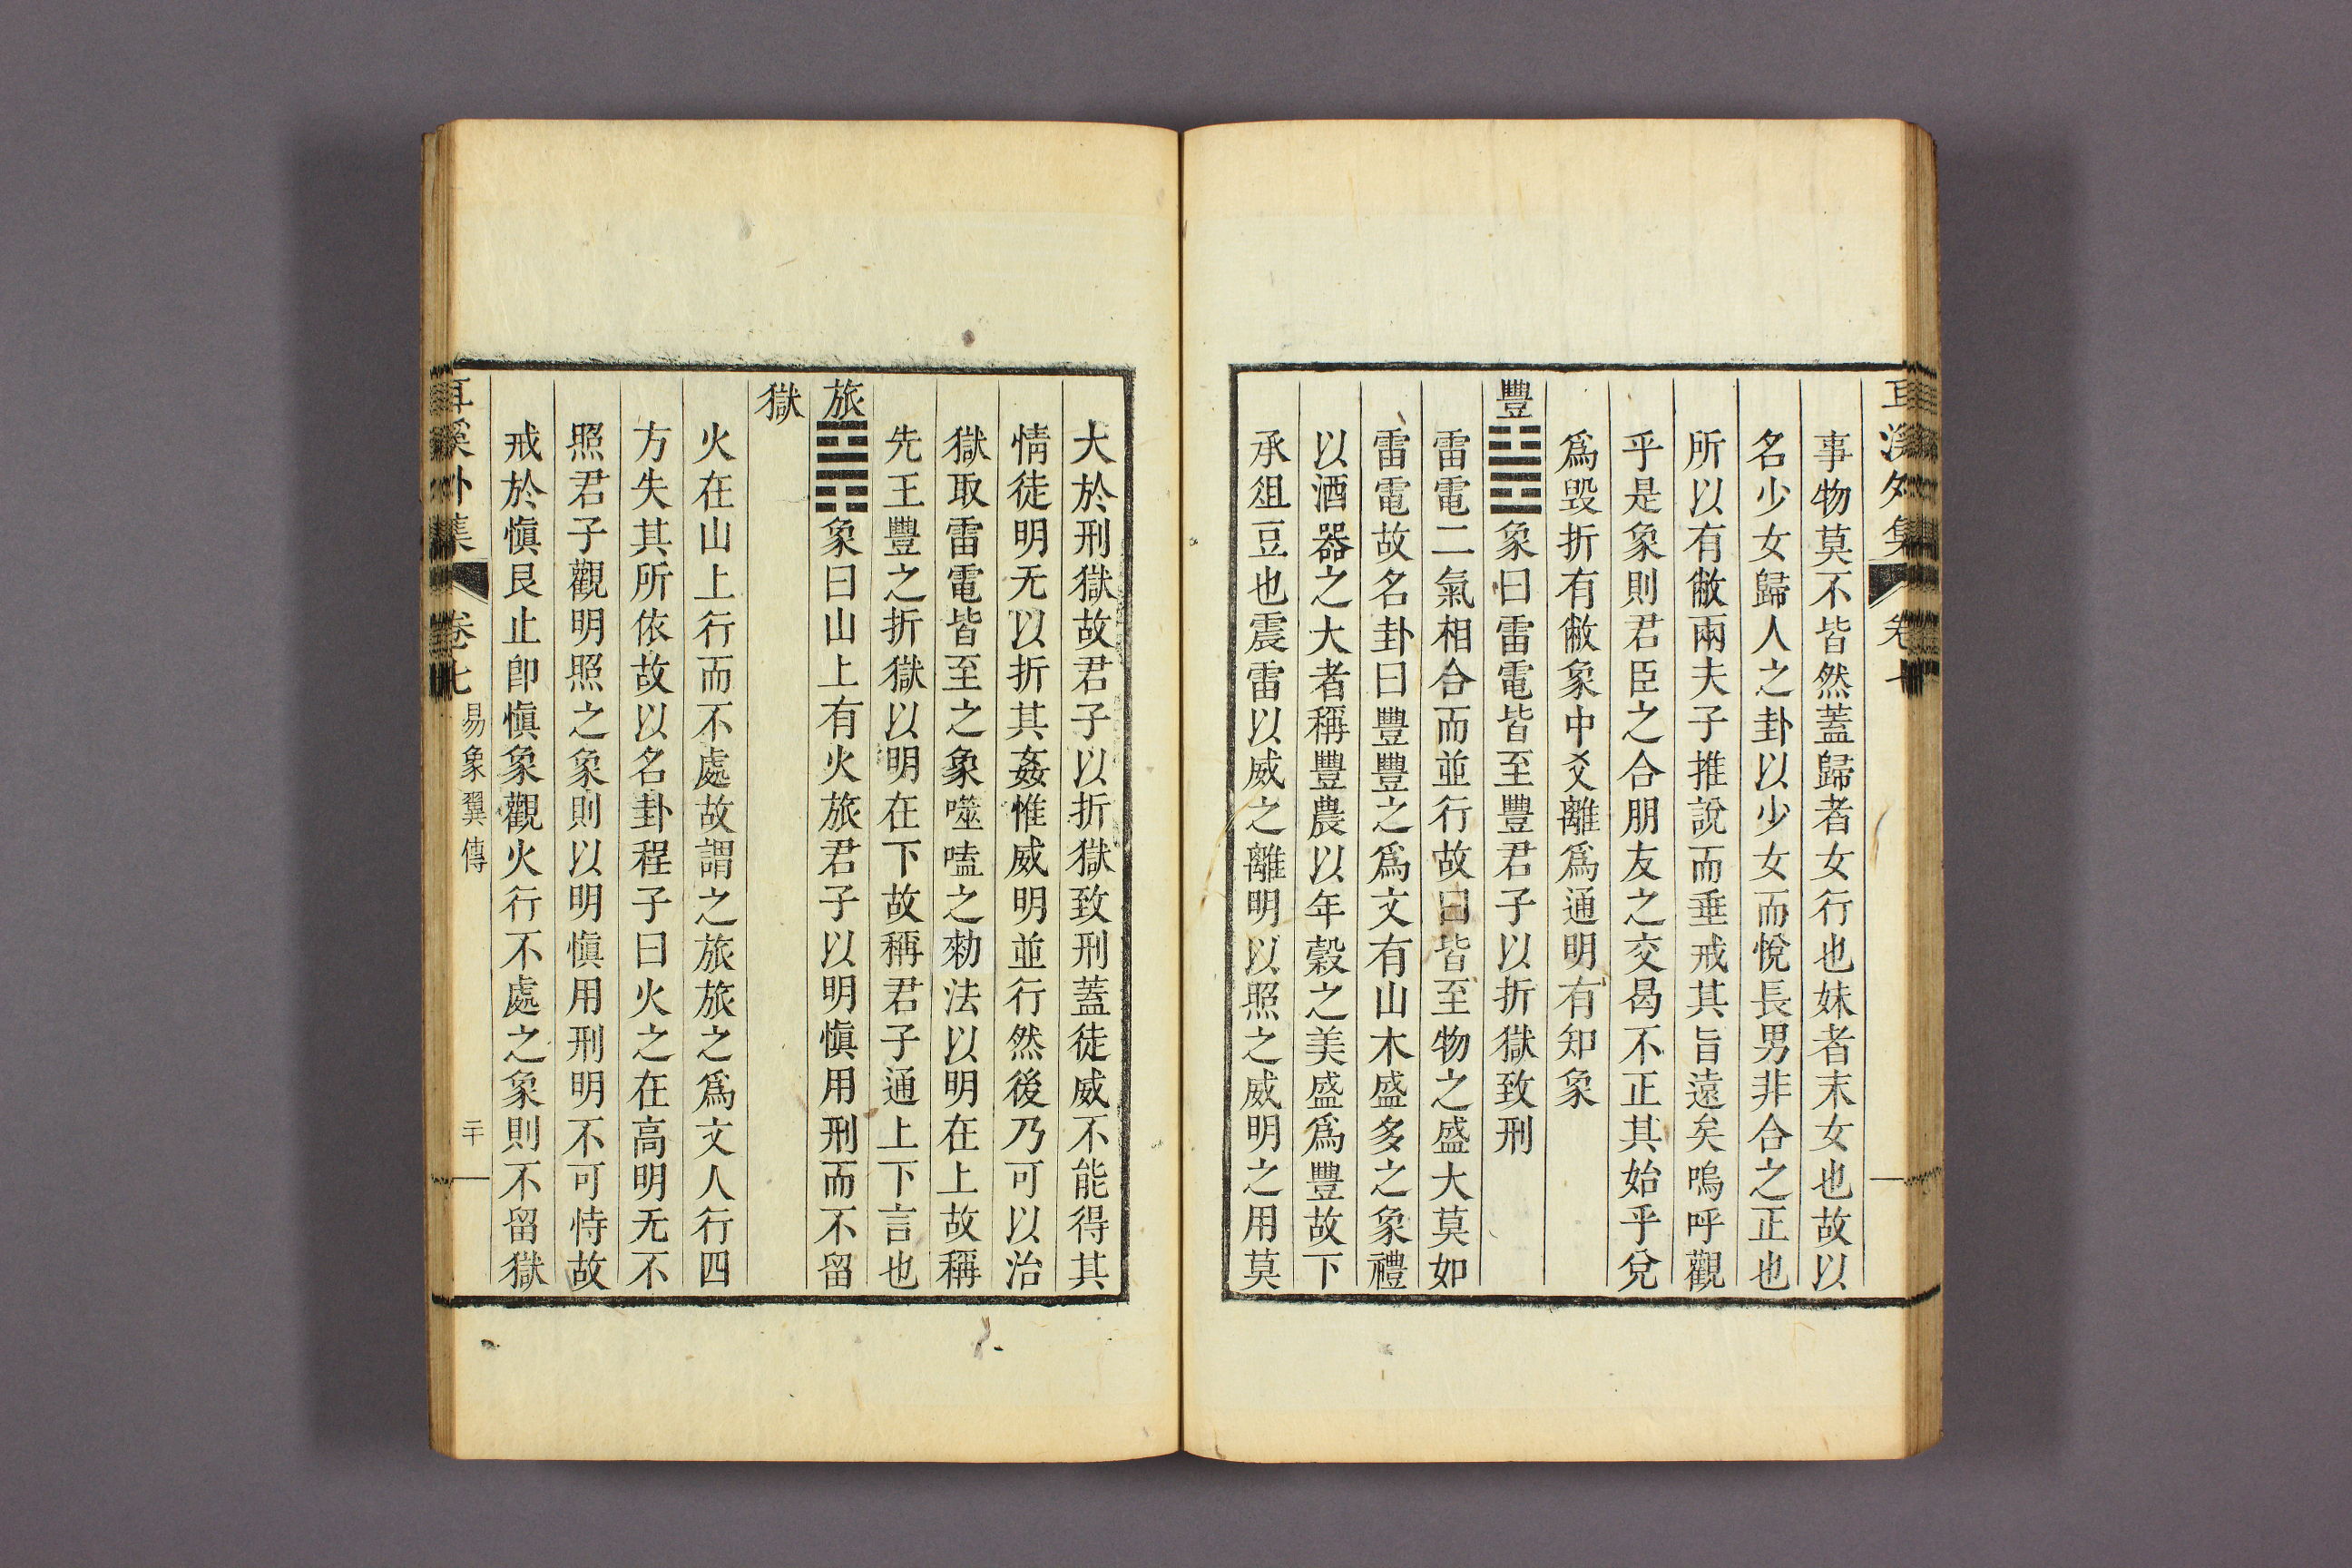 耳溪外集 卷七
事物莫不皆然蓋歸者女行也妹者末女也故以
名少女歸人之卦以少女而悅長男非合之正也
所以有敝兩夫子推說而垂戒其旨遠矣嗚呼觀
乎是象則君臣之合朋友之交曷不正其始乎兌
爲毀折有敝象中爻離爲通明有知象
豐䷶象曰雷電皆至豐君子以折獄致刑
雷電二氣相合而並行故曰皆至物之盛大莫如
雷電故名卦曰豐豐之爲文有山木盛多之象禮
以酒器之大者稱豐農以年穀之美盛爲豐故下
承俎豆也震雷以威之離明以照之威明之用莫
大於刑獄故君子以折獄致刑蓋徒威不能得其
情徒明无以折其姦惟威明並行然後乃可以治
獄取雷電皆至之象噬嗑之勑法以明在上故稱
先王豐之折獄以明在下故稱君子通上下言也
旅䷷象曰山上有火旅君子以明愼用刑而不留
獄
火在山上行而不處故謂之旅旅之爲文人行四
方失其所依故以名卦程子曰火之在高明无不
照君子觀明照之象則以明愼用刑明不可恃故
戒於愼艮止卽愼象觀火行不處之象則不留獄
耳溪外集 卷七 易象翼傳 二十